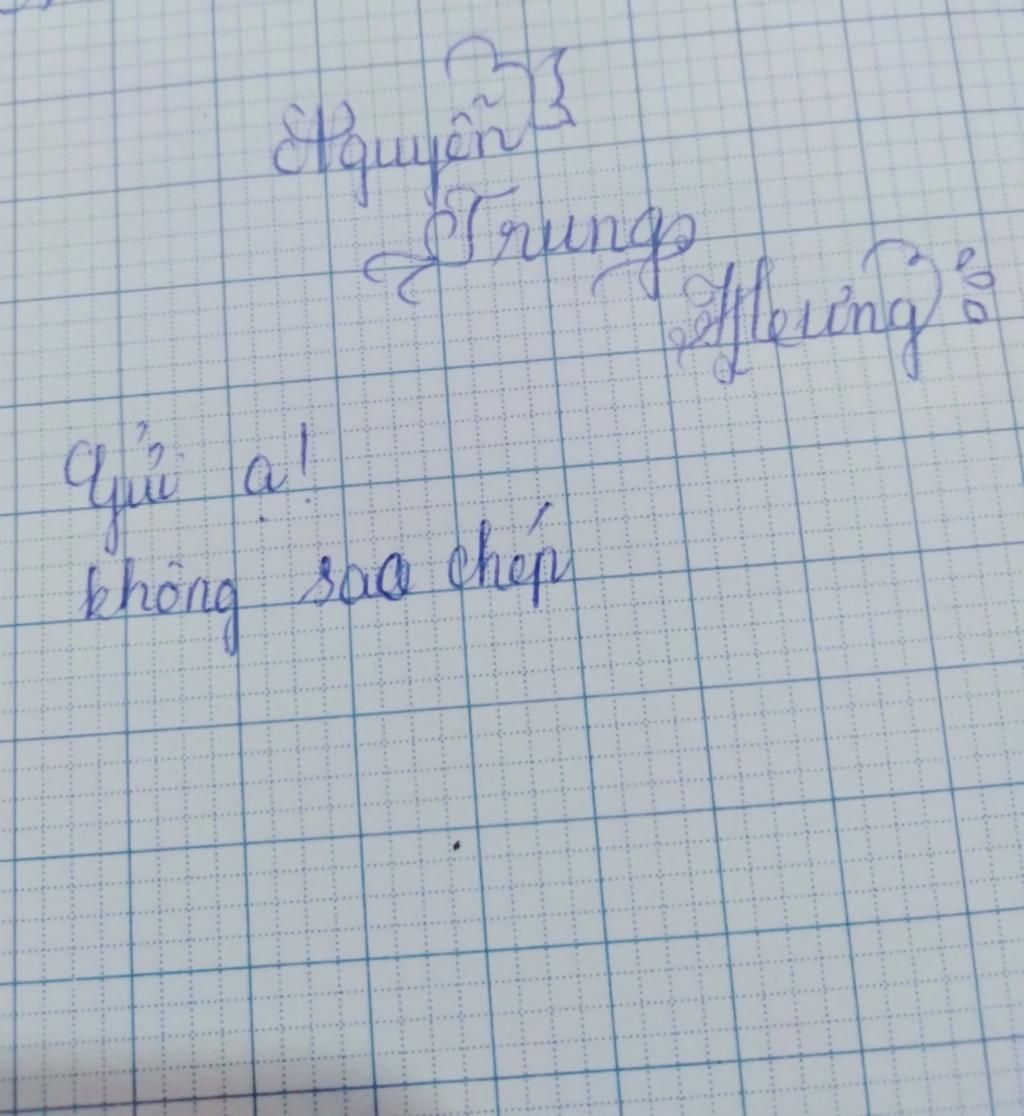 Nguyễn
Trung
Hưởng
Gửi ạ!
không sao chép